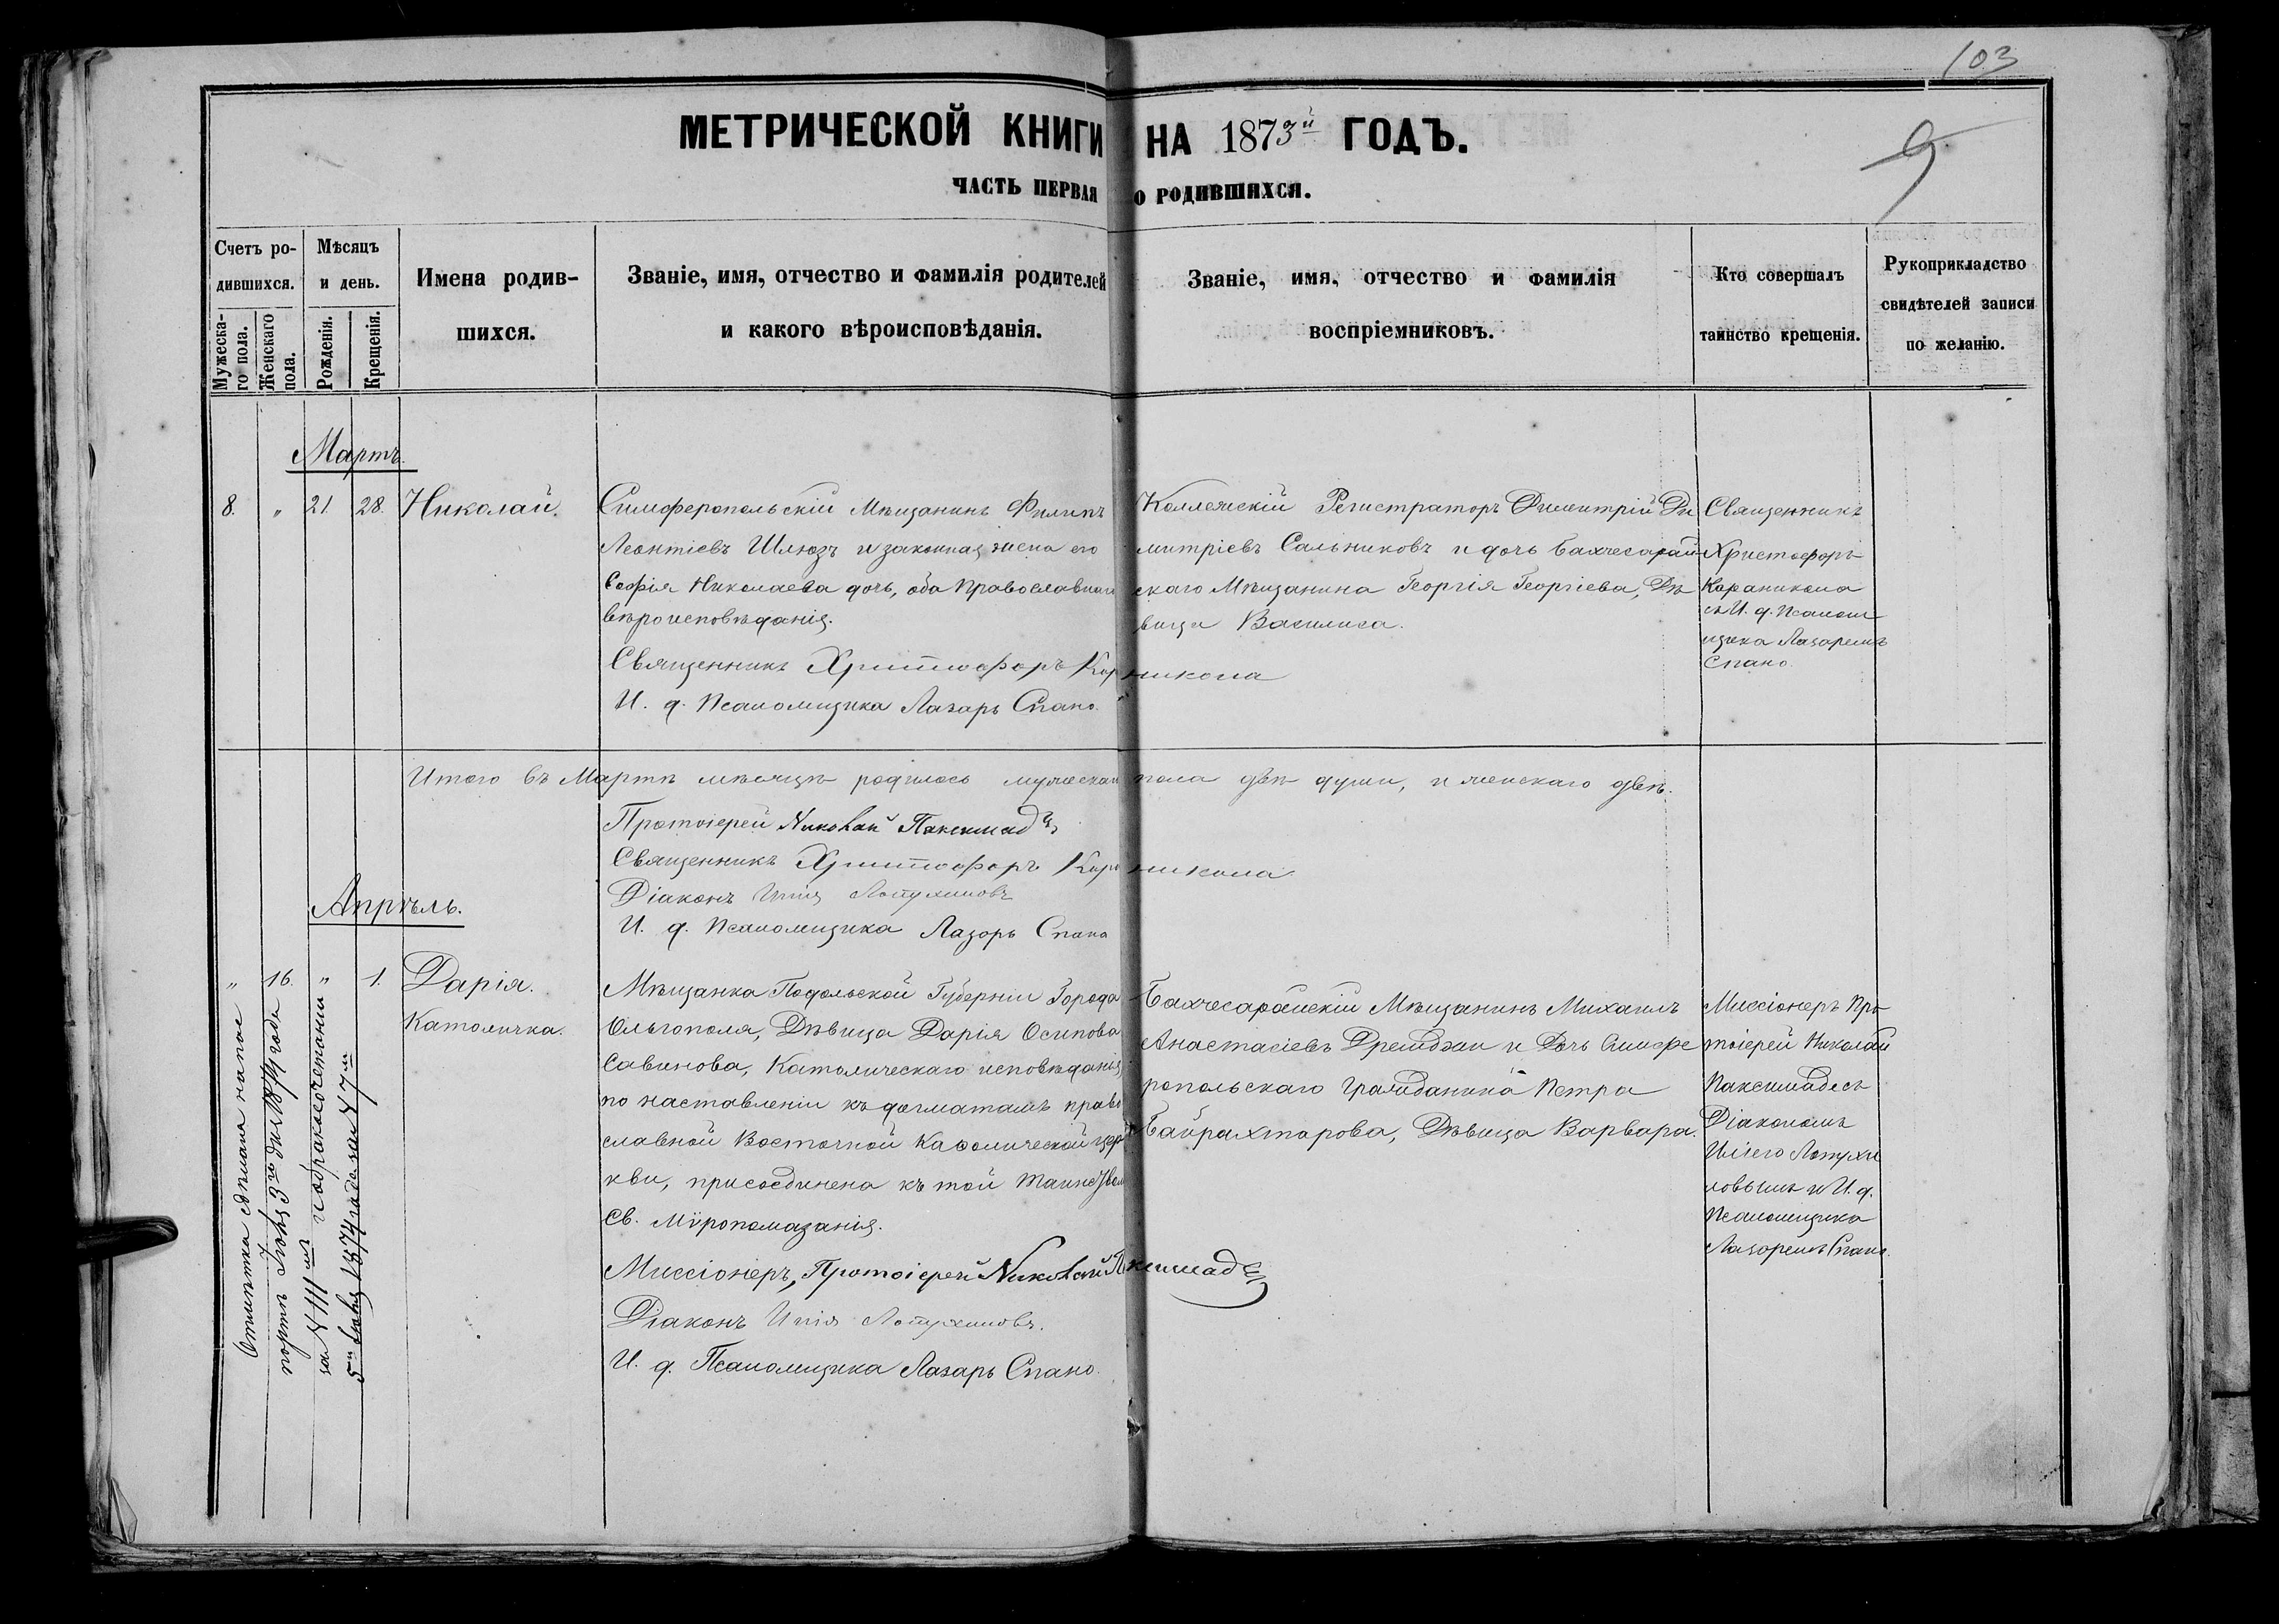 103
МЕТРИЧЕСКОЙ КНИГИ НА 1873й ГОДЪ.
9
ЧАСТЬ ПЕРВАЯ О РОДИВШИХСЯ.
Счетъ ро-
дившихся.
Мужеска-
го пола.
Женскаго
пола.
Мѣсяцъ
и день.
Рожденія.
Крещенія.
Имена родив-
шихся.
Званіе, имя, отчество и фамилія родителей
и какого вѣроисповѣданія.
Званіе, имя, отчество и фамилія
воспріемниковъ.
Кто совершалъ
таинство крещенія.
Рукоприкладство
свидѣтелей записи
по желанію.
Мартъ.
8. " 21 28. Николай.
Симферопольскій Мѣщанинъ Филипъ
Леонтіевъ Шлюзъ и законная жена его
Софія Николаева дочь, оба Православнаго
вѣроисповѣданія.
Священникъ Христофоръ Караникола
И. д. Псаломщика Лазарь Спано.
Коллежскій Регистраторъ Димитрій Ди
митріевъ Сальниковъ и дочь Бахчесарай
скаго Мѣщанина Георгія Георгіева, Дѣ
вица Василиса.
Священникъ
Христофоръ
Караникола
съ И. д. Псалом
щика Лазаремъ
Спано.
Итого въ Мартѣ мѣсяцѣ родилось мужескаго пола двѣ души, и женскаго двѣ.
Протоіерей Николай Паксимадъ
Священникъ Христофоръ Караникола
Діаконъ Илія Лопухиновъ
И. д. Псаломщика Лазорь Спано
Апрѣль.
" 16. " 1. Дарія.
Католичка.
Мѣщанка Подольской Губерніи Города
Ольгополя, Дѣвица Дарія Осипова
Савинова, Католическаго исповѣданія
по наставленіи къ догматамъ право
славной Восточной Каѳолической цер
кви, присоединена къ той Таинством
Св. Мѵропомазанія.
Миссіонеръ, Протоіерей Николай Паксимадъ
Діаконъ Илія Лопухиновъ.
И. д. Псаломщика Лазарь Спано.
Бахчесарайскій Мѣщанинъ Михаилъ
Анастасіевъ Дремджи и Дочь Симфе
ропольскаго гражданина Петра
Байрахтарова, Дѣвица Варвара.
Миссіонеръ Про
тоіерей Николай
Паксимадесъ
Діакономъ
Иліею Лопухи
новымъ и И. д.
Псаломщика
Лазоремъ Спано.
Отмѣтка сдѣлана на пас
портѣ Іюня 3го дня 1874 года
за № 111мъ и о бракосочетаніи
5го Іюня 1874 года за № 7м